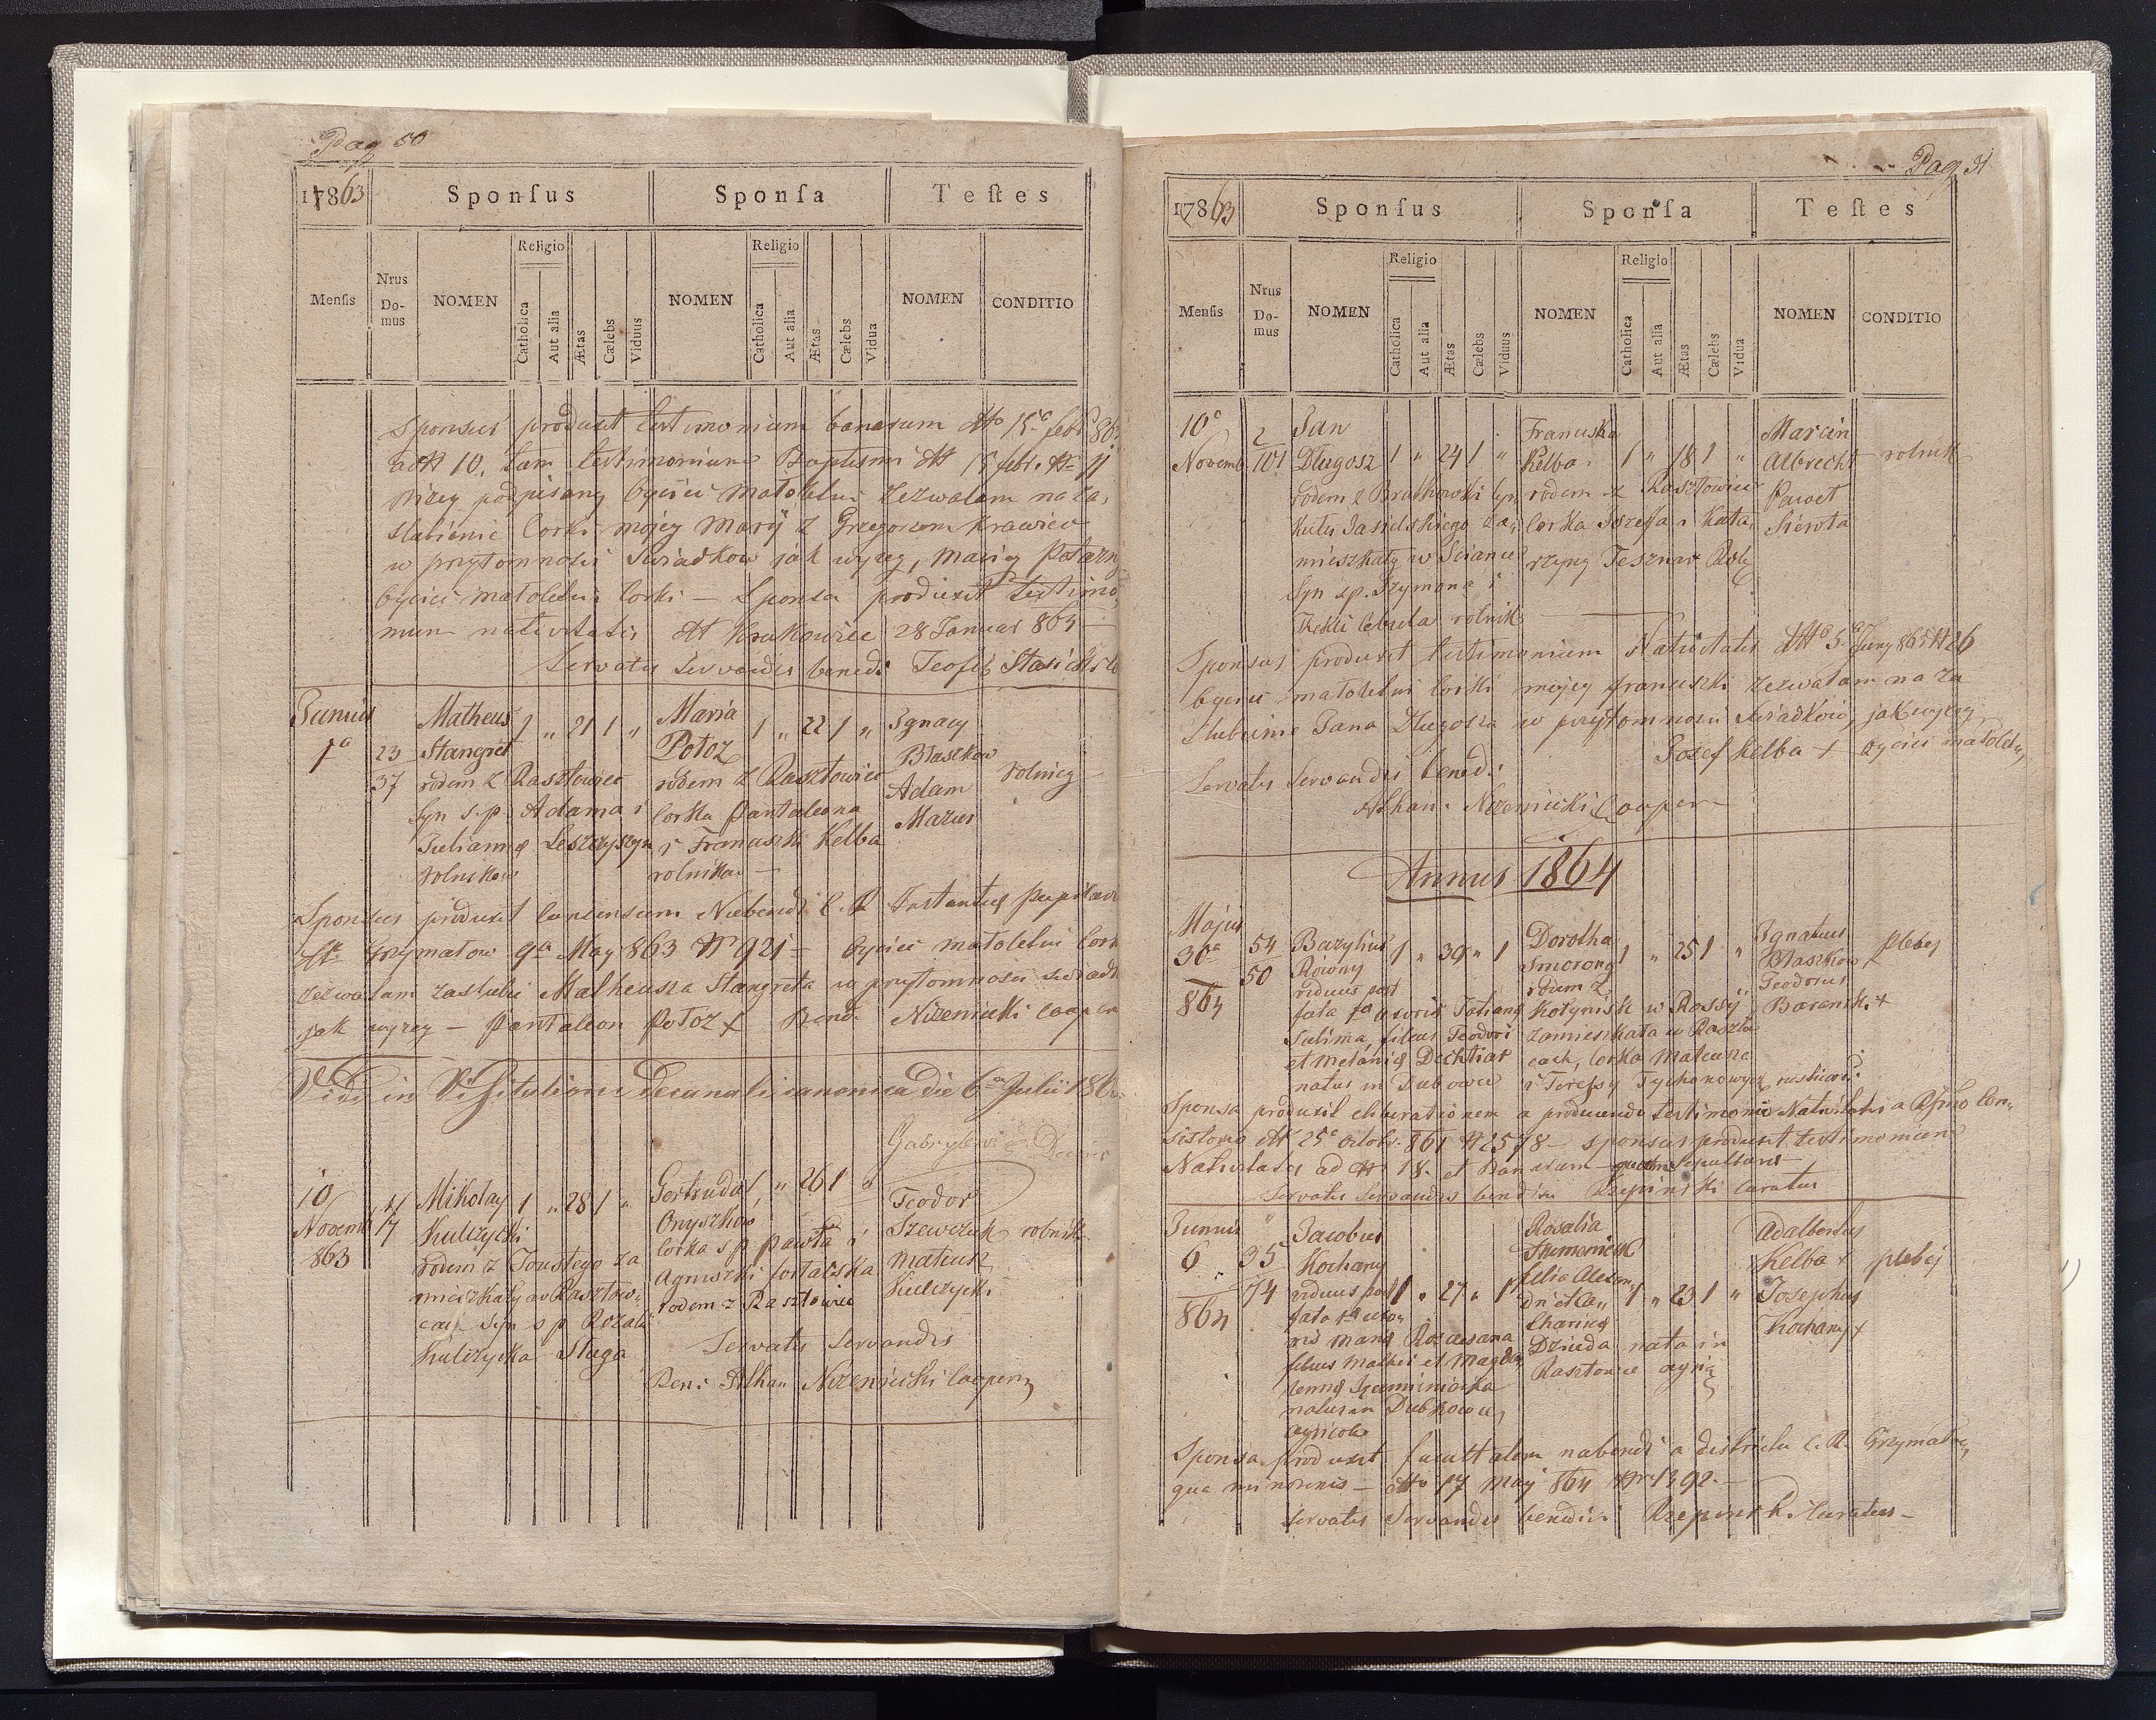 Pag 50
17863
Sponſus
Sponſa
Teſtes
Menſis
Nrus Do-mus
NOMEN
Religio
Catholica
Aut alia
Ætas
Cælebs
Viduus
NOMEN
Religio
Catholica
Aut alia
Ætas
Cælebs
Vidua
NOMEN
CONDITIO
Sponsus produxit testimonium banorum dtto 15a febr 86
ad N 10. tam testimonium Baptismi dtt 15 febr. N 11
Niżej podpisany byciec małoletni zezwalam na za,
slubienie Corki mojey Maryi z Grzegorzom Krawiec
w przytomności Swiadkow jak wyzey, Maciey
byciec małoletni Corki — Sponsa produxit testimo
nium nativitatis dtt Krakowiec 28 Januar 863 —
Servatis Servandis bened: Teofil
Junius
1a
23
37
Matheus 1 „ 21 1 „
Stangret
rodem z Rasztowiec
Syn s.p. Adama i
Julianny Leszczyszyn
rolnikow
Maria 1 „ 22 1 „
Potoz
rodem z Rasztowiec
Corka Pantaleona
i Franciszki Kelba
rolnikow —
Ignacy
Błaszkow
Adam
Mazur
rolnicy
Sponsus produxit Consensum Nubendi C. R. Instantiae
dtt Grzymałow 9a May 863 N 921 — byciec małoletni Cork
zezwalam zaslubić Matheusza Stangreta w przytomności swiadk
jak wyzey — Pantaleon Potoz + Bened. Nizeniecki cooper
Vidi in Visitatione Decanali canonica die 6a Julii 186
Gabry
10
Novemb
863
17
Mikolay 1 „ 28 1 „
Kulczycki
rodem z Toustego za
mieszkały w Rasztow,
cach Syn s p Rozalii
Kulczycka Sługa
Gertruda 1 „ 26 1 „
Onyszkow
Corka s p Pawła i
Agnieszki
rodem z Rasztowiec
Teodor
Szewczuk rolnik
Mateusz
Kulczycki
Servatis Servandis
Ben: Athan Nizeniecki Cooper
Pag 51
17863
Sponſus
Sponſa
Teſtes
Menſis
Nrus Do-mus
NOMEN
Religio
Catholica
Aut alia
Ætas
Cælebs
Viduus
NOMEN
Religio
Catholica
Aut alia
Ætas
Cælebs
Vidua
NOMEN
CONDITIO
10a
Novemb
2
101
Jan
Długosz 1 „ 24 1 „
rodem z Bratkowki Cyr,
kułu Jasielskiego za,
mieszkały w Sciance
Syn sp. Szymona i
Tekli Cebula rolnik
Franciszka
Kelba 1 „ 18 1 „
rodem z Rasztowiec
Corka Jozefa i Kata,
rzyny Tesznar
Marcin
Albrecht rolnik
Paweł
Sierota
Sponsus produxit testimonium Nativitatis dtto 5a Juny 863 N 26
byciec małoletni Corki mojey Franciszki zezwalam na za
slubienie Jana Długosza w przytomności Swiadkow, jak wyzey
Jozef Kelba + byciec małoletn,
Servatis Servandis bened:
Athan: Nizeniecki Cooper
Annus 1864
Majus
30a
864
54
50
Bazylius 1 „ 39 „ 1
Równy
viduus post
fata 1a uxoris Tatianę
Sulima, filius Teodori
et Melanię Dechtiar
natus in Dubowce
Dorotha 1 „ 25 1 „
Smorong
rodem z
w Rossyi
zamieszkała w Raszto
cach, Corka Mateusza
i Teressy Tychonowycz rusticor:
Ignatius
Błaszkow + plebej
Teodorus
Baranski +
Sponsa produxit eliberationem a producendo testimonio Nativitatis a Con,
sistorio dtt 25a Octobr. 861 N 2578 — sponsus produxit testimonium
Nativitatis ad N 18. et Banorum — Sepulturae
Servatis Servandis bendixi Rzepinski Curatus
Junius
6
864
35
74
Jacobus
Kochany
viduus post 1 „ 27 „ 1
fata 1a uxo,
ris Marię
filius Mathei et Magda,
lennę
natus in Dubkowce,
agricola
Rosalia
filia Alexan,
dri et Ca, 1 „ 23 1 „
tharinę
Dziuda nata in
Rasztowce
Adalbertus
Kelba + plebej
Josephus
Kochany +
Sponsa produxit facultatem nubendi a districtu C. R. Grzymałow,
qua minorenis — dtto 17 May 864 Nr 1392. —
Servatis Servandis benedixi Rzepinski Curatus —